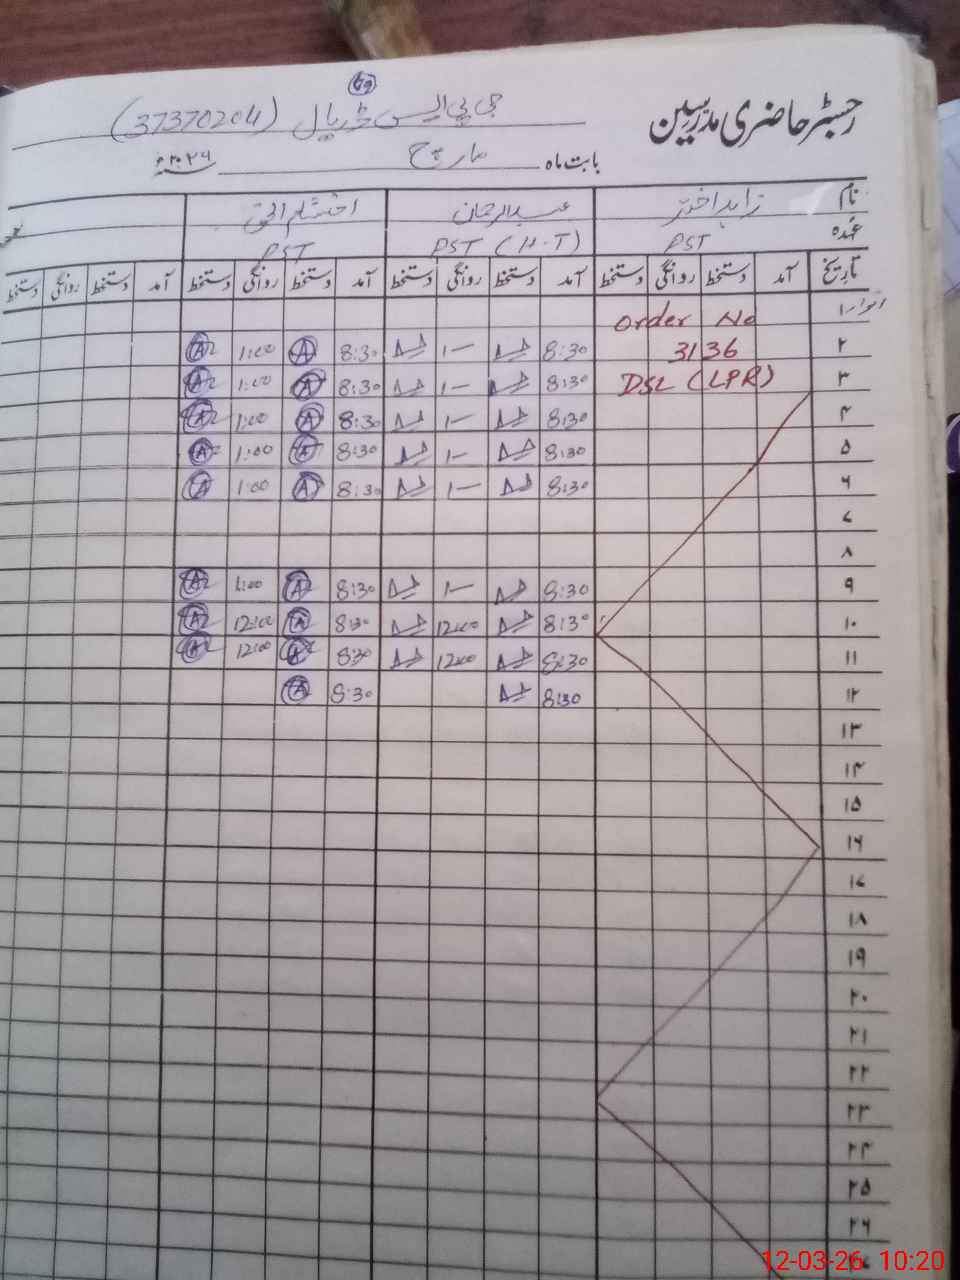 69
جی پی ایس ڈریال (37370204)
رجسٹر حاضری مدرسین
بابت ماہ مارچ ۲۰۲۶ء
نام زاہد اختر عبدالرحمان احتشام الحق
عہدہ PST PST (H.T) PST
تاریخ آمد دستخط روانگی دستخط آمد دستخط روانگی دستخط آمد دستخط روانگی دستخط آمد دستخط روانگی دستخط
۱ اتوار Order No
۲ 3136 8:30 1- 8:30 A 1:00 A
۳ DSL (LPR) 8:30 1- 8:30 A 1:00 A
۴ 8:30 1- 8:30 A 1:00 A
۵ 8:30 1- 8:30 A 1:00 A
۶ 8:30 1- 8:30 A 1:00 A
۷
۸
۹ 8:30 1- 8:30 A 1:00 A
۱۰ 8:30 12:00 8:30 A 12:00 A
۱۱ 8:30 12:00 8:30 A 12:00 A
۱۲ 8:30 8:30 A
۱۳
۱۴
۱۵
۱۶
۱۷
۱۸
۱۹
۲۰
۲۱
۲۲
۲۳
۲۴
۲۵
۲۶
۲۷
12-03-26 10:20